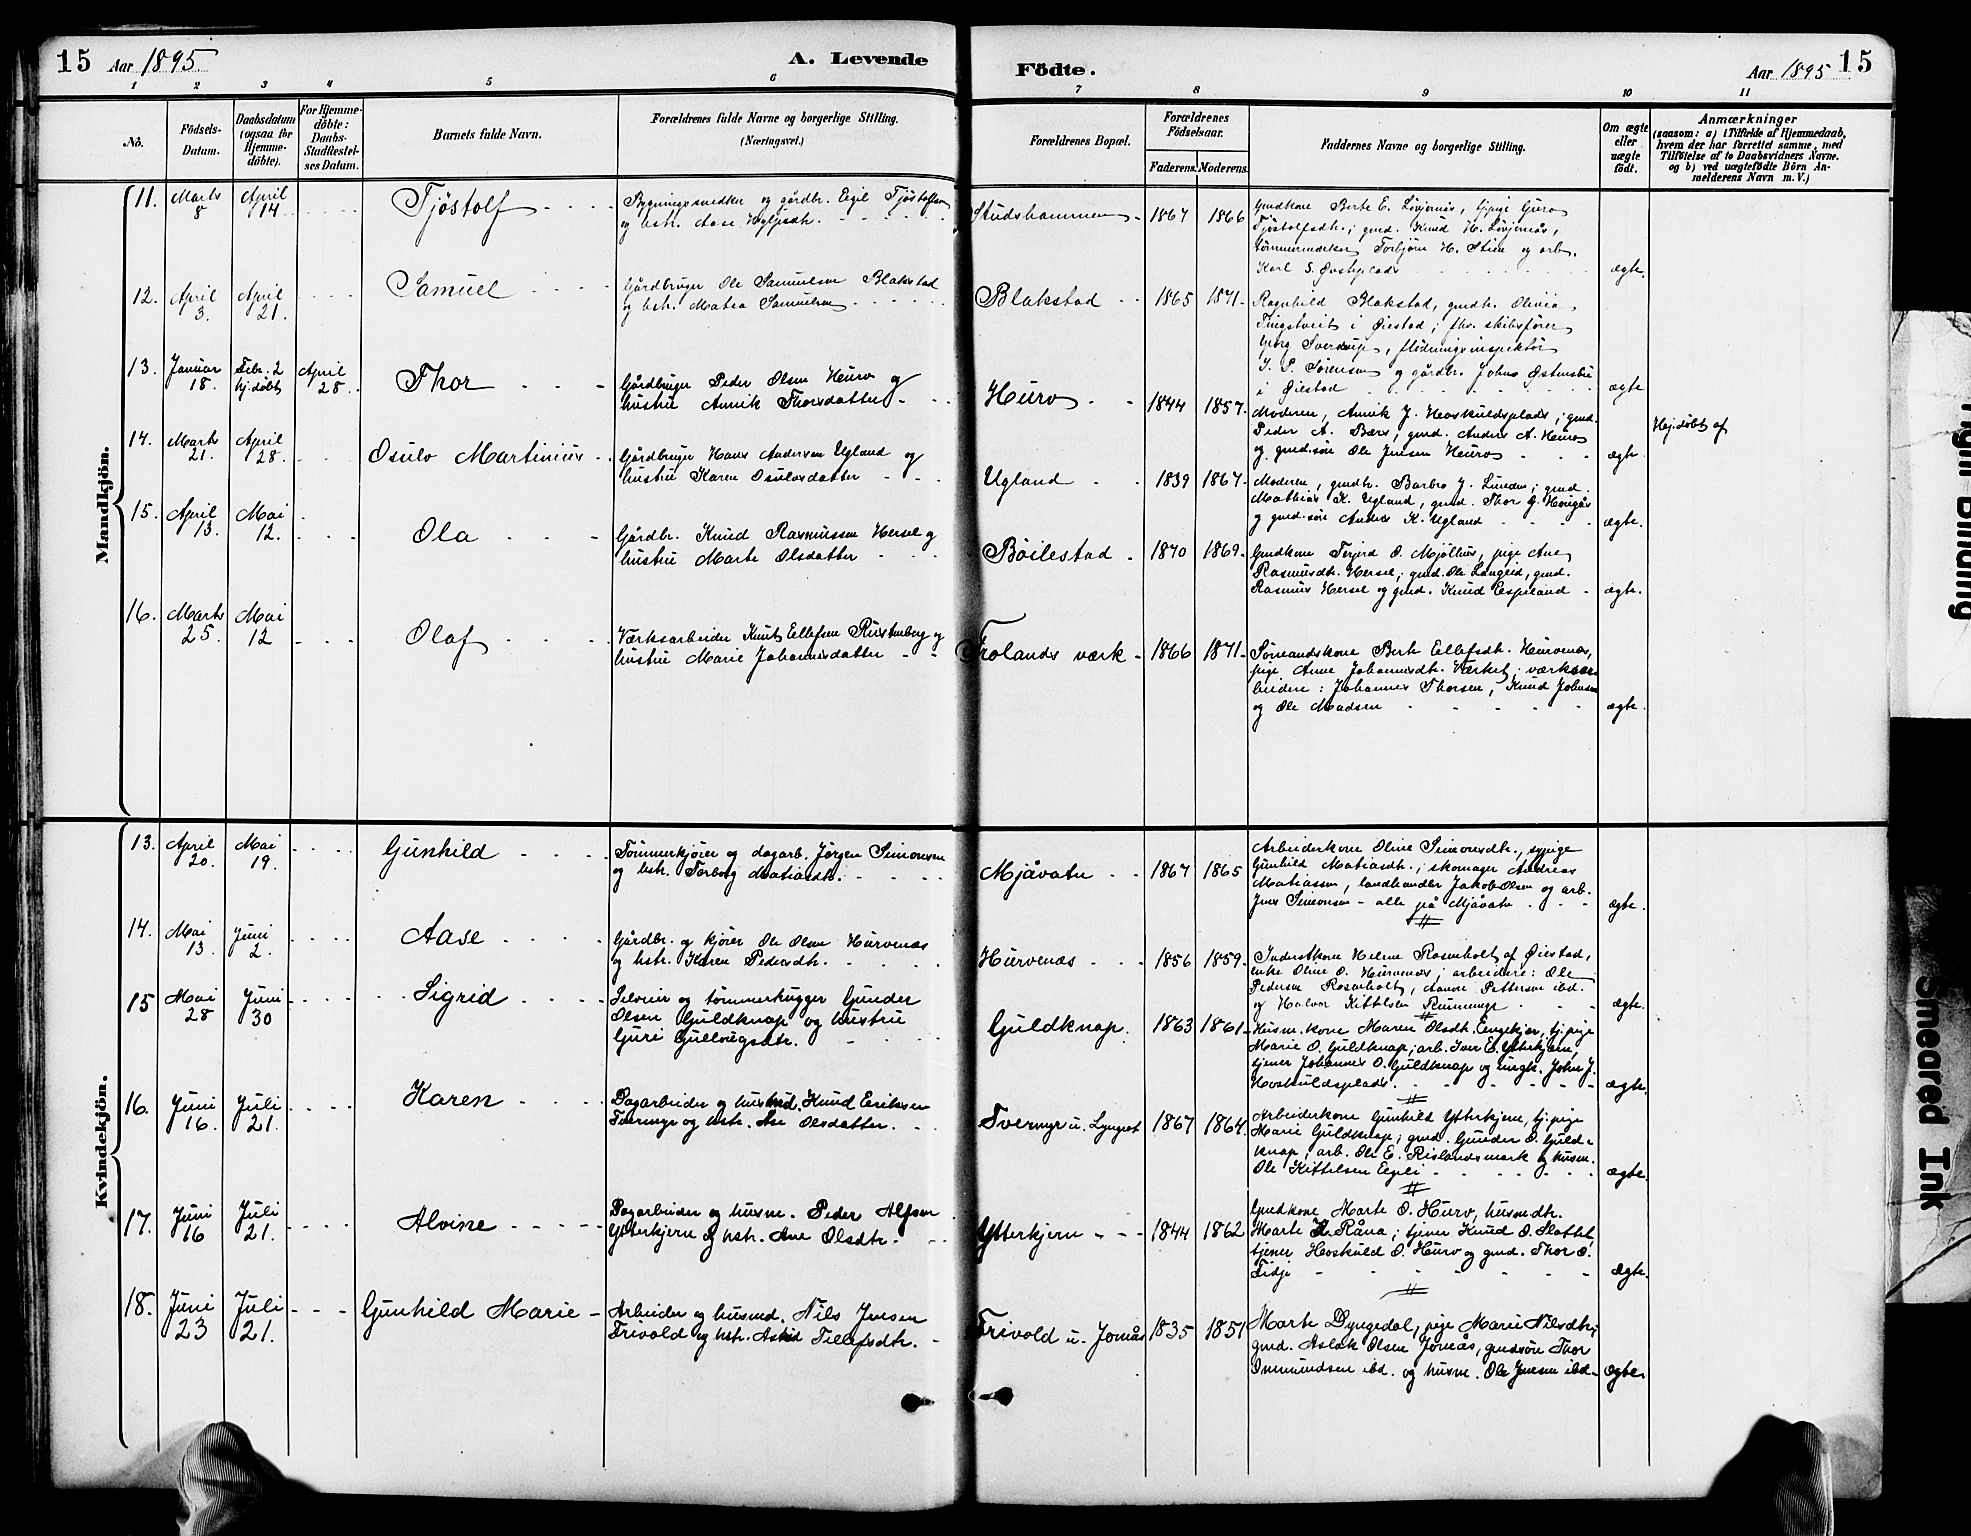 15 Aar 1895. A. Levende Födte. Aar 1895 15
1 2 3 4 5 6 7 8 9 10 11
No. Födsels-Datum. Daabsdatum (ogsaa for Hjemmedöbte). For Hjemmedöbte: Daabs-Stadfestelses Datum. Barnets fulde Navn. Forældrenes fulde Navne og borgerlige Stilling. (Næringsvei.) Forældrenes Bopæl. Forældrenes Födselsaar. Faderens. Moderens. Faddernes Navne og borgerlige Stilling. Om ægte eller uægte födt.
Anmærkninger
(saasom: a) i Tilfælde af Hjemmedaab,
hvem der har forrettet samme, med
Tilföielse af to Daabsvidners Navne,
og b) ved uægtefödte Börn An-
melderens Navn m. V.)
Mandkjön.
11. Marts 8 April 14 Tjöstolf
Bygningssnedker og gårdbr. Egil Tjöstolfsen
og hstr. Aase
Studshammen 1867 1866
Gmdkone Berte E. Lövjernås, tj.pige Guro
Tjöstolfsdtr.; gmd. Knud H. Lövjernås,
tömmermærker Torbjörn H. Stien og arb.
Karl S. ægte.
12. April 3. April 21. Samuel
Gårdbruger Ole Samuelsen Blakstad
og hstr. Matea Samuelsen
Blakstad 1865 1871
Ragnhild Blakstad, gmdtr. Olivia
Tingstveit i Öiestad; fhv. skibsförer
Georg Sverdrup, flödningsinspektör
J. P. Sörensen og gårdbr. Johns
i Öiestad ægte
13. Januar 18. Febr. 2 hj.döbt April 28 Thor
Gårdbruger Peder Olsen Heuro og
hustru Annik Thorsdatter
Heuro 1844 1857.
Moderen, Annik J. Hoskuldsplads; gmd.
Peder A. Bærs; gmd. Anders A. Heuro
og gmd.sön Ole Jensen Heuro ægte
Hj.döbt af
14. Marts 21. April 28. Osulv Martinius
Gårdbruger Hans Andersen Ugland og
hustru Karen Osulvsdatter
Ugland 1839 1867
Moderen, gmdtr. Barbro J. Lunden; gmd.
Mathias K. Ugland, gmd. Thor G.
og gmd.sön Anders K. Ugland ægte.
15. April 13. Mai 12. Ola
Gårdbr. Knud Rasmussen Hersel og
hustru Marte Olsdatter
Böilestad 1870 1869
Gmdkone Terjerd O. Mjölhus, pige Ane
Rasmusdtr. Hersel; gmd. Ole Langeid, gmd.
Rasmus Hersel og gmd. Knud Espeland ægte.
16. Marts 25. Mai 12 Olaf
Værksarbeider Knut Ellefsen Rustenberg og
hustru Marie Johannesdatter
Frolands værk 1866 1871
Sömandskone Berte Ellefsdtr. Heurvenes,
pige Anne Johannesdtr. Værket; værksar
beidere: Johannes Thorsen, Knud Johnsen
og Ole Madsen ægte.
Kvindekjön.
13. April 20. Mai 19. Gunhild
Tömmerkjörer og dagarb. Jörgen Simonsen
og hstr. Torborg Matiasdtr.
Mjåvatn 1867 1865
Arbeiderkone Oline Simonsdtr., sypige
Gunhild Matiasdtr.; skomager Andreas
Matiassen, landhandler Jakob Olsen og arb.
Jens Simonsen – alle på Mjåvatn ægte.
14. Mai 13. Juni 2. Aase
Gårdbr. og kjörer Ole Olsen Hurvenes
og hstr. Karen Pedersdtr.
Hurvenæs 1856 1859
Inderstkone Helene Rosenholt af Öiestad,
enke Oline O. Hurvenæs; arbeidere: Ole
Pedersen Rosenholt, Aanon Pettersen ibd.
og Halvor Kittelsen ægte.
15 Mai 28 Juni 30 Sigrid
Selveier og tömmerhugger Gunder
Olsen Guldknap og hustru
Guri Gullvægsdtr.
Guldknap. 1863 1861
Husm.kone Maren Olsdtr. Engekjær, tj.pige
Marie O. Guldknap; arb. Iver E. Ytterkjern,
tjener Johannes O. Guldknap og ungk. John J.
Hoskuldsplads. ægte.
16. Juni 16. Juli 21. Karen
Dagarbeider og husmd. Knud Eriksen
Tvermyr og hstr. Ane Olsdatter.
Tvermyr u. Lyngrot 1867 1864.
Arbeiderkone Gunhild Ytterkjern, tj.pige
Marie Guldknap; gmd. Gunder O. Guld-
knap, arb. Ole E. Rislandsmark og husm.
Ole Kittelsen Egeli ægte.
17. Juni 16 Juli 21. Alvine
Dagarbeider og husm. Peder Alfsen
Ytterkjern og hstr. Ane Olsdtr.
Ytterkjern 1844 1862
Gmdkone Marte O. Hurv, husmdtr.
Marte K. Råna; tjener Knud O. Slottet,
tjener Hoskuld O. Hurv og gmd. Thor O.
Fidje Ægte.
18. Juni 23 Juli 21. Gunhild Marie
Arbeider og husmd. Nils Jensen
Trivold og hstr. Astrid Tellefsdtr.
Trivold u. Jomås 1835 1851
Marte Dyngedal, pige Marie Nilsdtr.;
gmd. Aslak Olsen Jomås, gmdsön Thor
Ommundsen ibd. og husm. Ole Jensen ibd. Ægte
Tight Binding
Smeared Ink